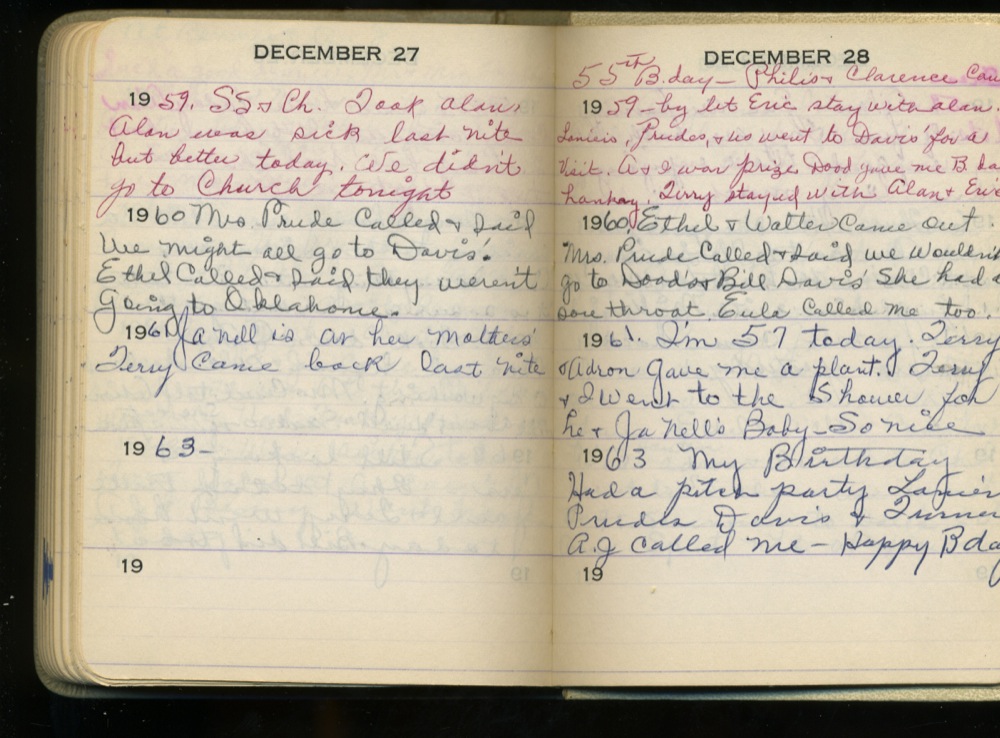 DECEMBER 27
1959. SS & Ch. Took alan,
Alan was sick last nite
but better today. We didn't
go to Church tonight
1960 Mrs. Prude Called & said
We might all go to Davis'.
Ethel Called & said they weren't
Going to Oklahoma.
1961 Ja nell is at her mothers'
Terry Came back last nite
1963-
19
DECEMBER 28
55th B.day - Philis & Clarence
1959 - by let Eric stay with alan
Laniers, Prudes, & us went to Davis' for a
Visit. A & I won prize. Dood gave me B
hanky. Terry stayed with Alan & Eric
1960, Ethel & Walter Came out
Mrs. Prude Called & said we wouldn't
go to Dood's & Bill Davis' She had
sore throat. Eula Called me too.
1961. I'm 57 today. Terry
& Adron gave me a plant. Terry
& I went to the Shower for
he & Ja Nell's Baby - So nice
1963 My Birthday
Had a pitch party Lanier
Prudes Davis & Turner
A.J called me - Happy Bday
19